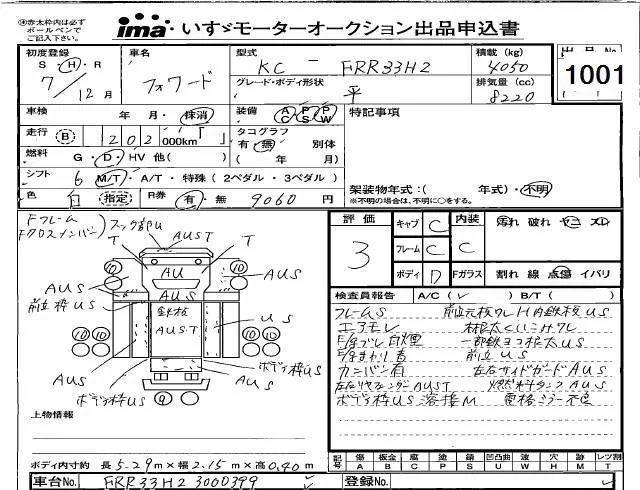 ※赤太枠内は必ず
ボールペンで
ご記入下さい。
ima いすゞモーターオークション出品申込書
初度登録 車名 型式 積載(kg) 出品No
S・H・R フォワード KC－FRR33H2 4050
7/12月 グレード・ボディ形状 排気量(cc) 1001
平 8220
車検 年 月・抹消 装備 AC PS PW 特記事項
走行 B 202,000km タコグラフ
有・無 別体
燃料 G・D・HV 他( ) ( 年 月)
シフト 6 M/T・A/T・特殊(2ペダル・3ペダル) 架装物年式:( 年式)・不明
※不明の場合は、不明に○をする。
色 白 指定 R券 有・無 9060円
Fフレーム
Fクロスメンバー
AUST
T T
AU
AUS AUS
AUS
前立枠US 鉄板 US
AUST
AUS AUS
ボデー枠US
ボデー枠US
上物情報
ボディ内寸約 長5.29m×幅2.15m×高0.40m
車台No. FRR33H2 3000399 登録No.
評価 3
キャブ C 内装 C 汚れ 破れ ヤニ スレ
フレーム C
ボディ D Fガラス 割れ 線 点傷 イバリ
検査員報告 A/C( ) B/T( )
フレームS
エアモレ
一部鉄ヨコ根太US
前立US
カンバン有 左右サイドガードAUS
燃料タンクAUS
ボデー枠US溶接M 電格ミラー不良
記号 傷 板金 腐 塗 錆 凹凸曲 波 穴 跡 レツ割
A B C P S U W H M T